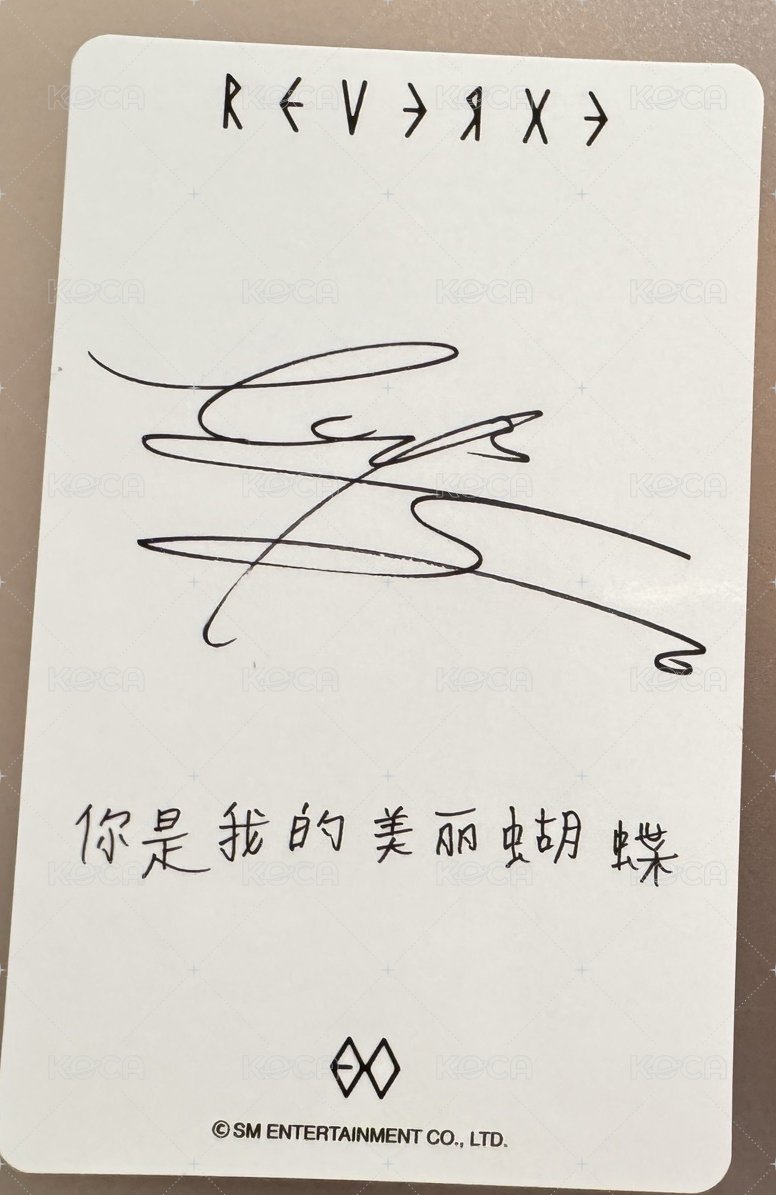 REVERXE
你是我的美丽蝴蝶
EXO
© SM ENTERTAINMENT CO., LTD.
KOCA